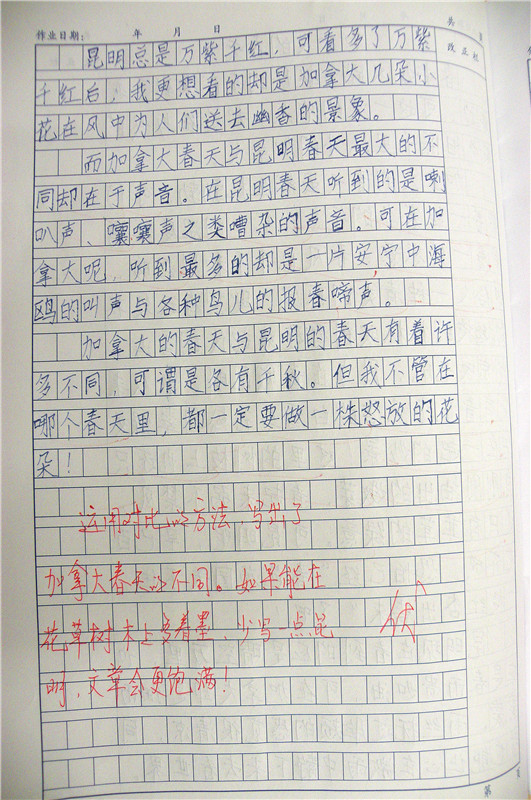 作业日期： 年 月 日 共 页
改正栏
昆明总是万紫千红，可看多了万紫
千红后，我更想看的却是加拿大几朵小
花在风中为人们送去幽香的景象。
而加拿大春天与昆明春天最大的不
同却在于声音。在昆明春天听到的是喇
叭声、嚷嚷声之类嘈杂的声音。可在加
拿大呢，听到最多的却是一片安宁中海
鸥的叫声与各种鸟儿的报春啼声。
加拿大的春天与昆明的春天有着许
多不同，可谓是各有千秋。但我不管在
哪个春天里，都一定要做一株怒放的花
朵！
运用对比的方法，写出了
加拿大春天的不同。如果能在
花草树木上多着墨，少写一点昆
明，文章会更饱满！
优
第